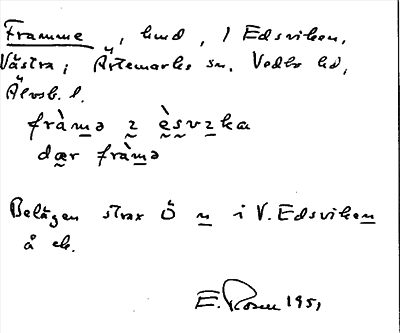 Framme, hmd, i Edsviken,
Västra, Ärtemarks sn. Vedbo hd,
Älvsb. l.
fràmə ɪ èsvɪka
dær fràmə
Belägen strax Ö n i V. Edsviken
å ek.
E. Rosen 1951